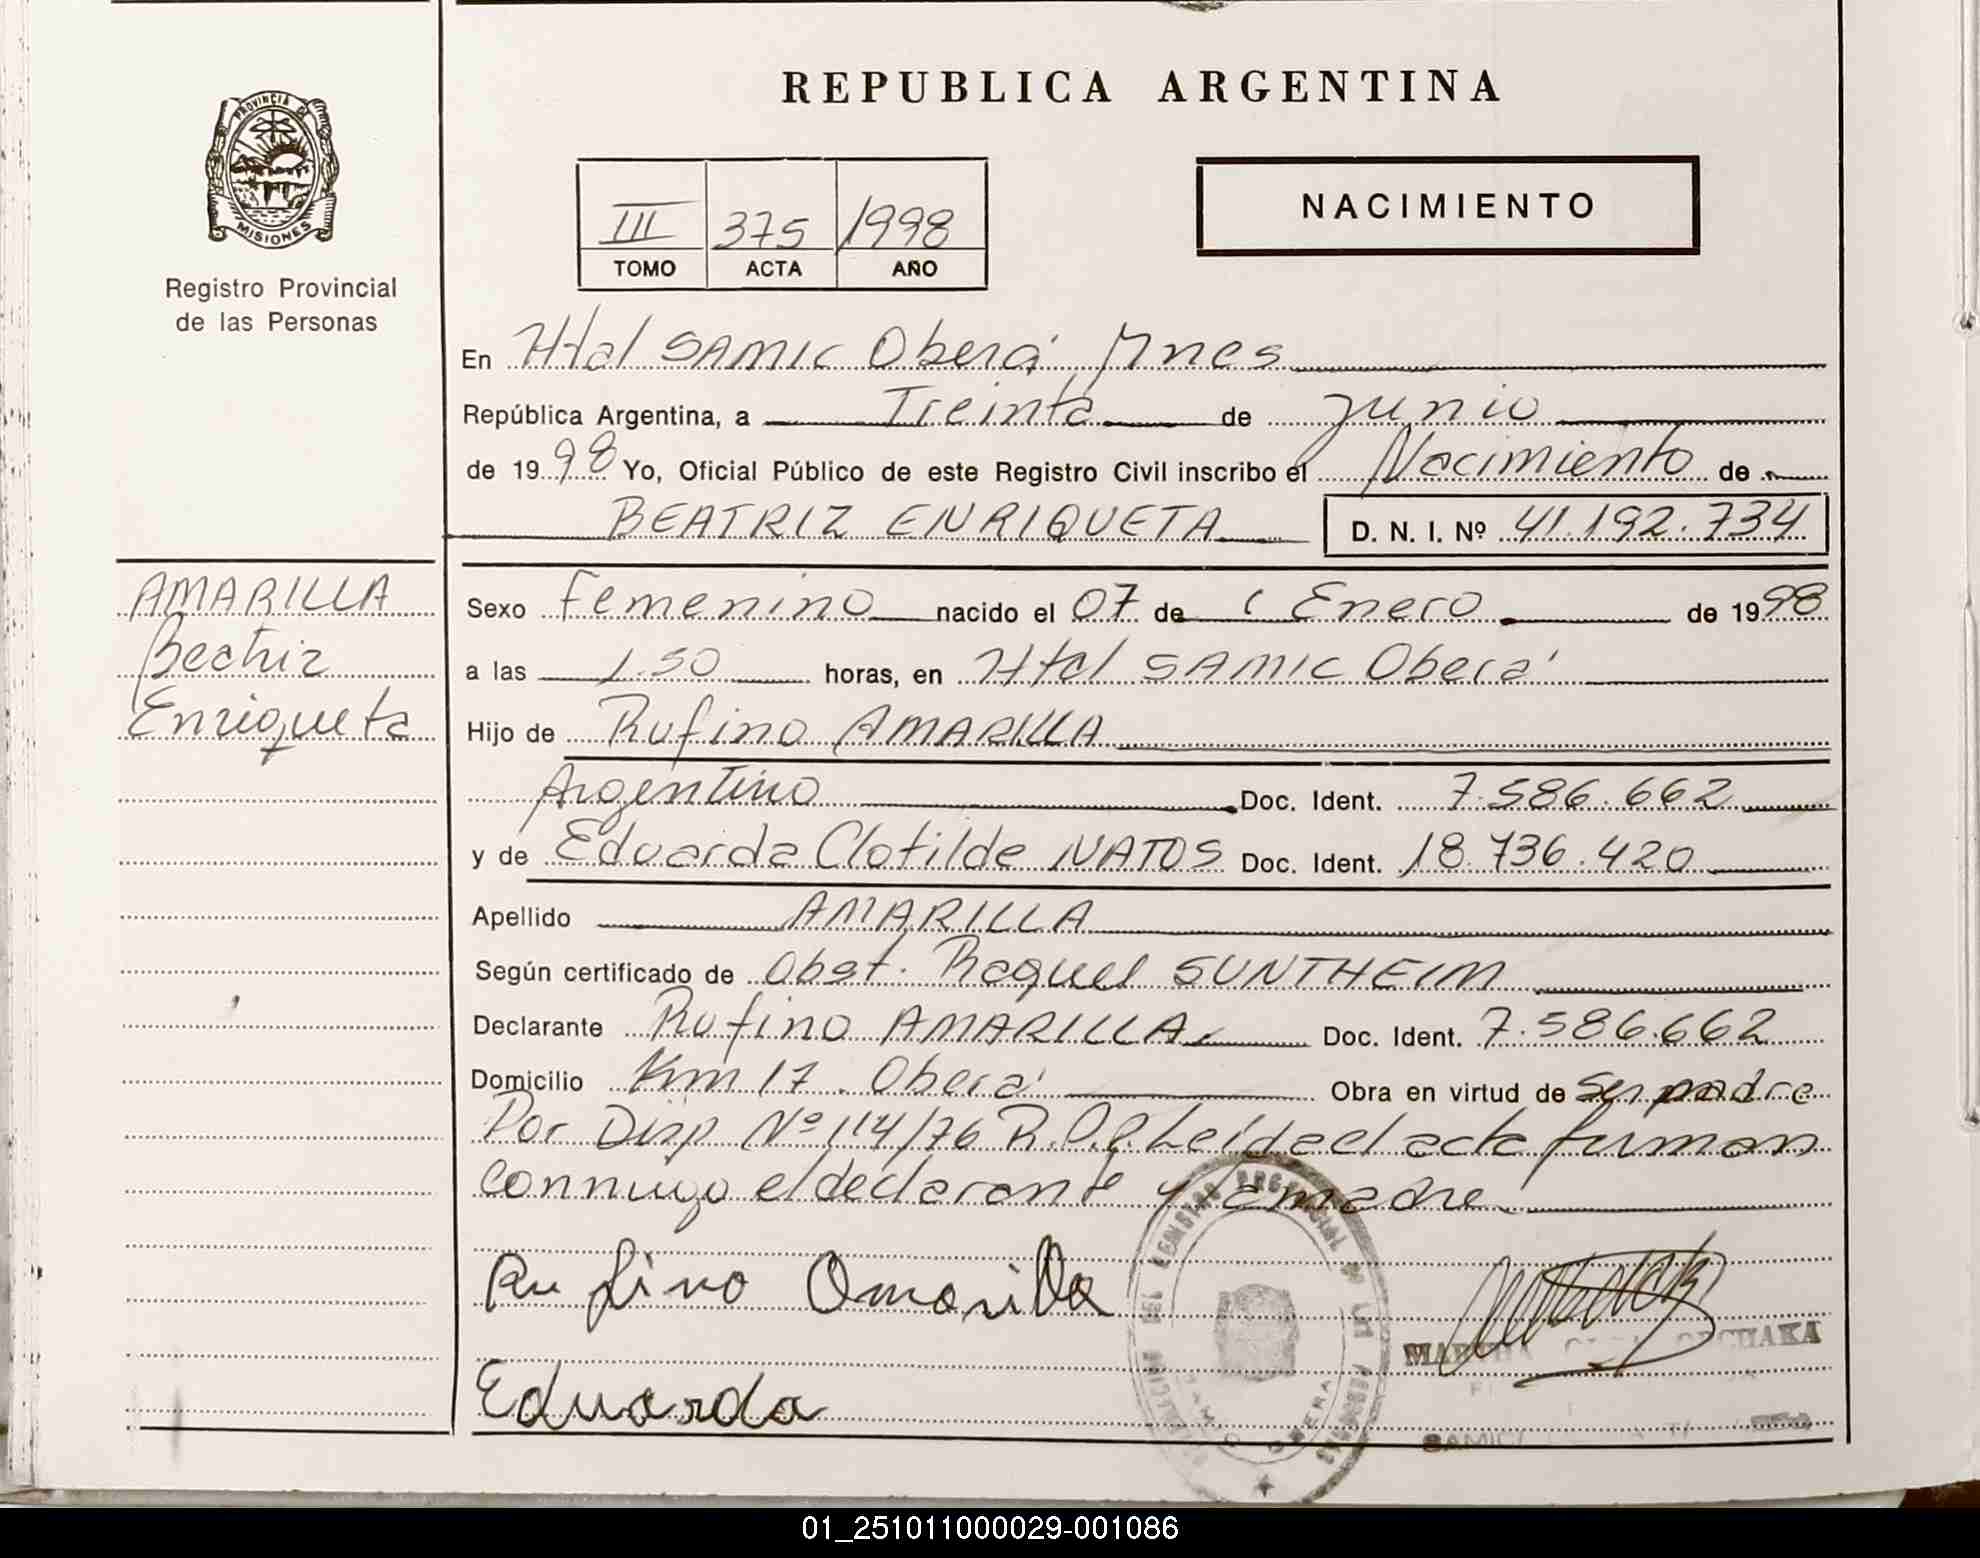 PROVINCIA DE
MISIONES
Registro Provincial
de las Personas
AMARILLA
Beatriz
Enriqueta
REPUBLICA ARGENTINA
III 375 1998
TOMO ACTA AÑO
NACIMIENTO
En Htal SAMIC Oberá Mnes
República Argentina, a Treinta de junio
de 1998 Yo, Oficial Público de este Registro Civil inscribo el Nacimiento de
BEATRIZ ENRIQUETA D. N. I. Nº 41.192.734
Sexo Femenino nacido el 07 de Enero de 1998
a las 1.50 horas, en Htal SAMIC Oberá
Hijo de Rufino AMARILLA
Argentino Doc. Ident. 7.586.662
y de Eduarda Clotilde NATOS Doc. Ident. 18.736.420
Apellido AMARILLA
Según certificado de Obst. Raquel SUNTHEIM
Declarante Rufino AMARILLA Doc. Ident. 7.586.662
Domicilio Km 17. Oberá Obra en virtud de ser padre
Por Disp Nº 114/76 R.P.P. Leída el acta firman
conmigo el declarante y la madre
Rufino Amarilla
MARTHA
Eduarda
SAMIC
01_251011000029-001086